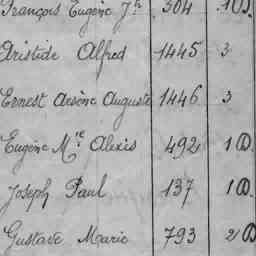 François Eugène Jh 304 1D.
Aristide Alfred 1445 3
Ernest Arsène Auguste 1446 3
Eugène Mie Alexis 492 1D.
Joseph Paul 137 1D.
Gustave Marie 793 2D